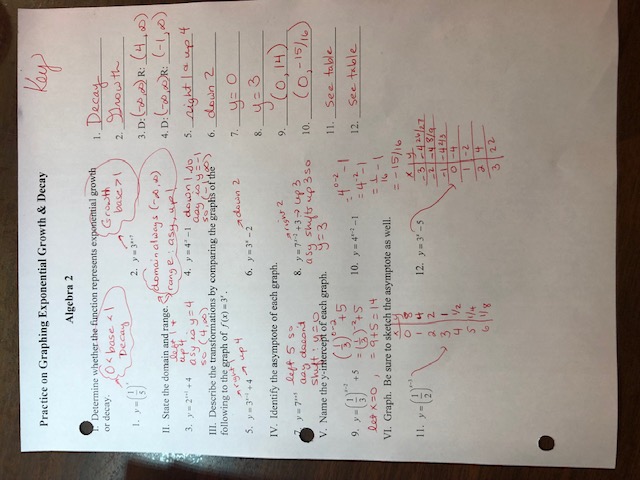 Key
Practice on Graphing Exponential Growth & Decay
Algebra 2
I. Determine whether the function represents exponential growth
or decay.
0 < base < 1
Decay
Growth
base > 1
1. y = (1/5)^x
2. y = 3^(x+7)
1. Decay
2. Growth
II. State the domain and range.
domain always (-∞, ∞)
range: asy, up↑
left 1 +
up 4
3. y = 2^(x+1) + 4
asy is y = 4
so (4, ∞)
4. y = 4^x - 1
down 1 so
asy is y = -1
so (-1, ∞)
3. D: (-∞, ∞) R: (4, ∞)
4. D: (-∞, ∞) R: (-1, ∞)
III. Describe the transformations by comparing the graphs of the
following to the graph of f(x) = 3^x.
5. y = 3^(x-1) + 4
right 1
up 4
6. y = 3^x - 2
down 2
5. right 1 & up 4
6. down 2
IV. Identify the asymptote of each graph.
7. y = 7^(x+5)
left 5 so
asy doesn't
shift: y = 0
8. y = 7^(x-2) + 3
right 2
up 3
asy shifts up 3 so
y = 3
7. y = 0
8. y = 3
V. Name the y-intercept of each graph.
9. y = (1/3)^(x-2) + 5
let x = 0,
(1/3)^(0-2) + 5
= (1/3)^-2 + 5
= 9 + 5 = 14
10. y = 4^(x-2) - 1
= 4^(0-2) - 1
= 4^-2 - 1
= 1/16 - 1
= -15/16
9. (0, 14)
10. (0, -15/16)
VI. Graph. Be sure to sketch the asymptote as well.
11. y = (1/2)^(x-3)
x y
0 8
1 4
2 2
3 1
4 1/2
5 1/4
6 1/8
12. y = 3^x - 5
x y
-3 -4 26/27
-2 -4 8/9
-1 -4 2/3
0 -4
1 -2
2 4
3 22
11. See table
12. See table